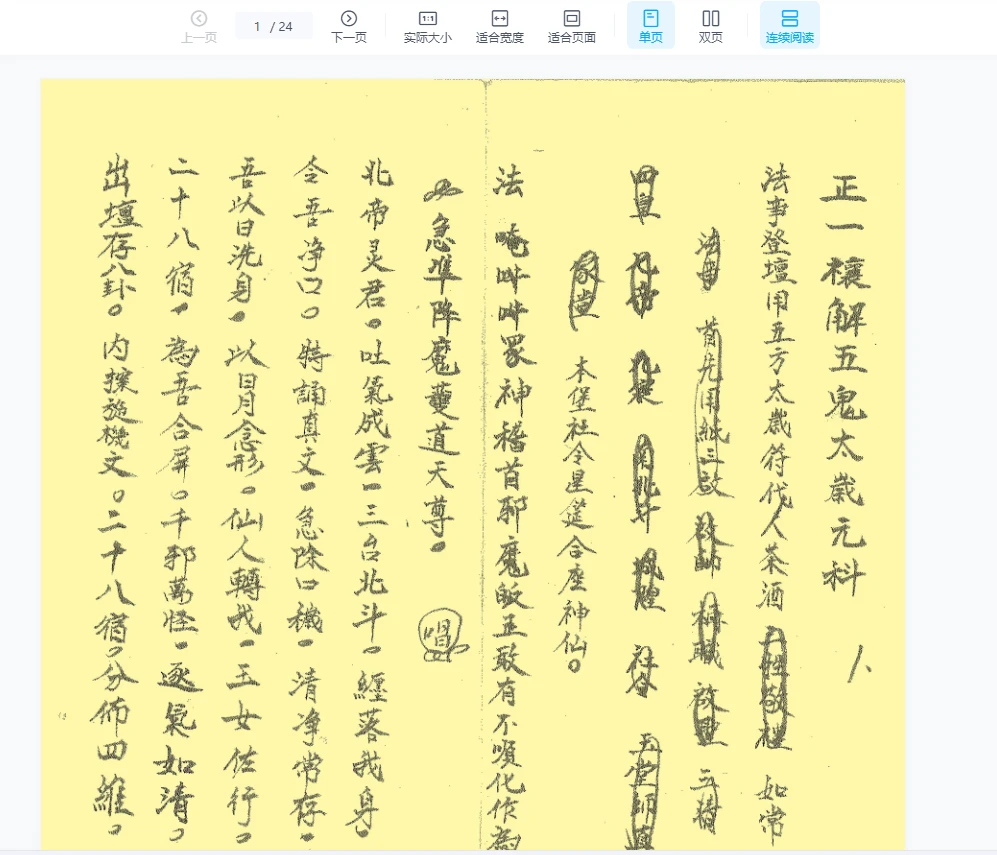 上一页
1 / 24
下一页
1:1
实际大小
适合宽度
适合页面
单页
双页
连续阅读
正一禳解五鬼太歲元科
法事登壇用五方太歲符代人茶酒 如常
法事 首先用紙三啟 啟師 職 啟聖 三精
四皇 城隍 社令 玉堂師真
家堂 本堡社令星筵合座神仙。
法 唵吽吽眾神稽首邪魔皈正敢有不順化作為
急準降魔護道天尊。 唱
北帝灵君。吐氣成雲。三台北斗。纏落我身。
令吾净口。特誦真文。急除口穢。清净常存。
吾以日洗身。以月念形。仙人轉我。玉女佐行。
二十八宿。為吾合屏。千邪萬怪。逐氣如清。
出壇存八卦。内探旋機文。二十八宿。分佈四維。